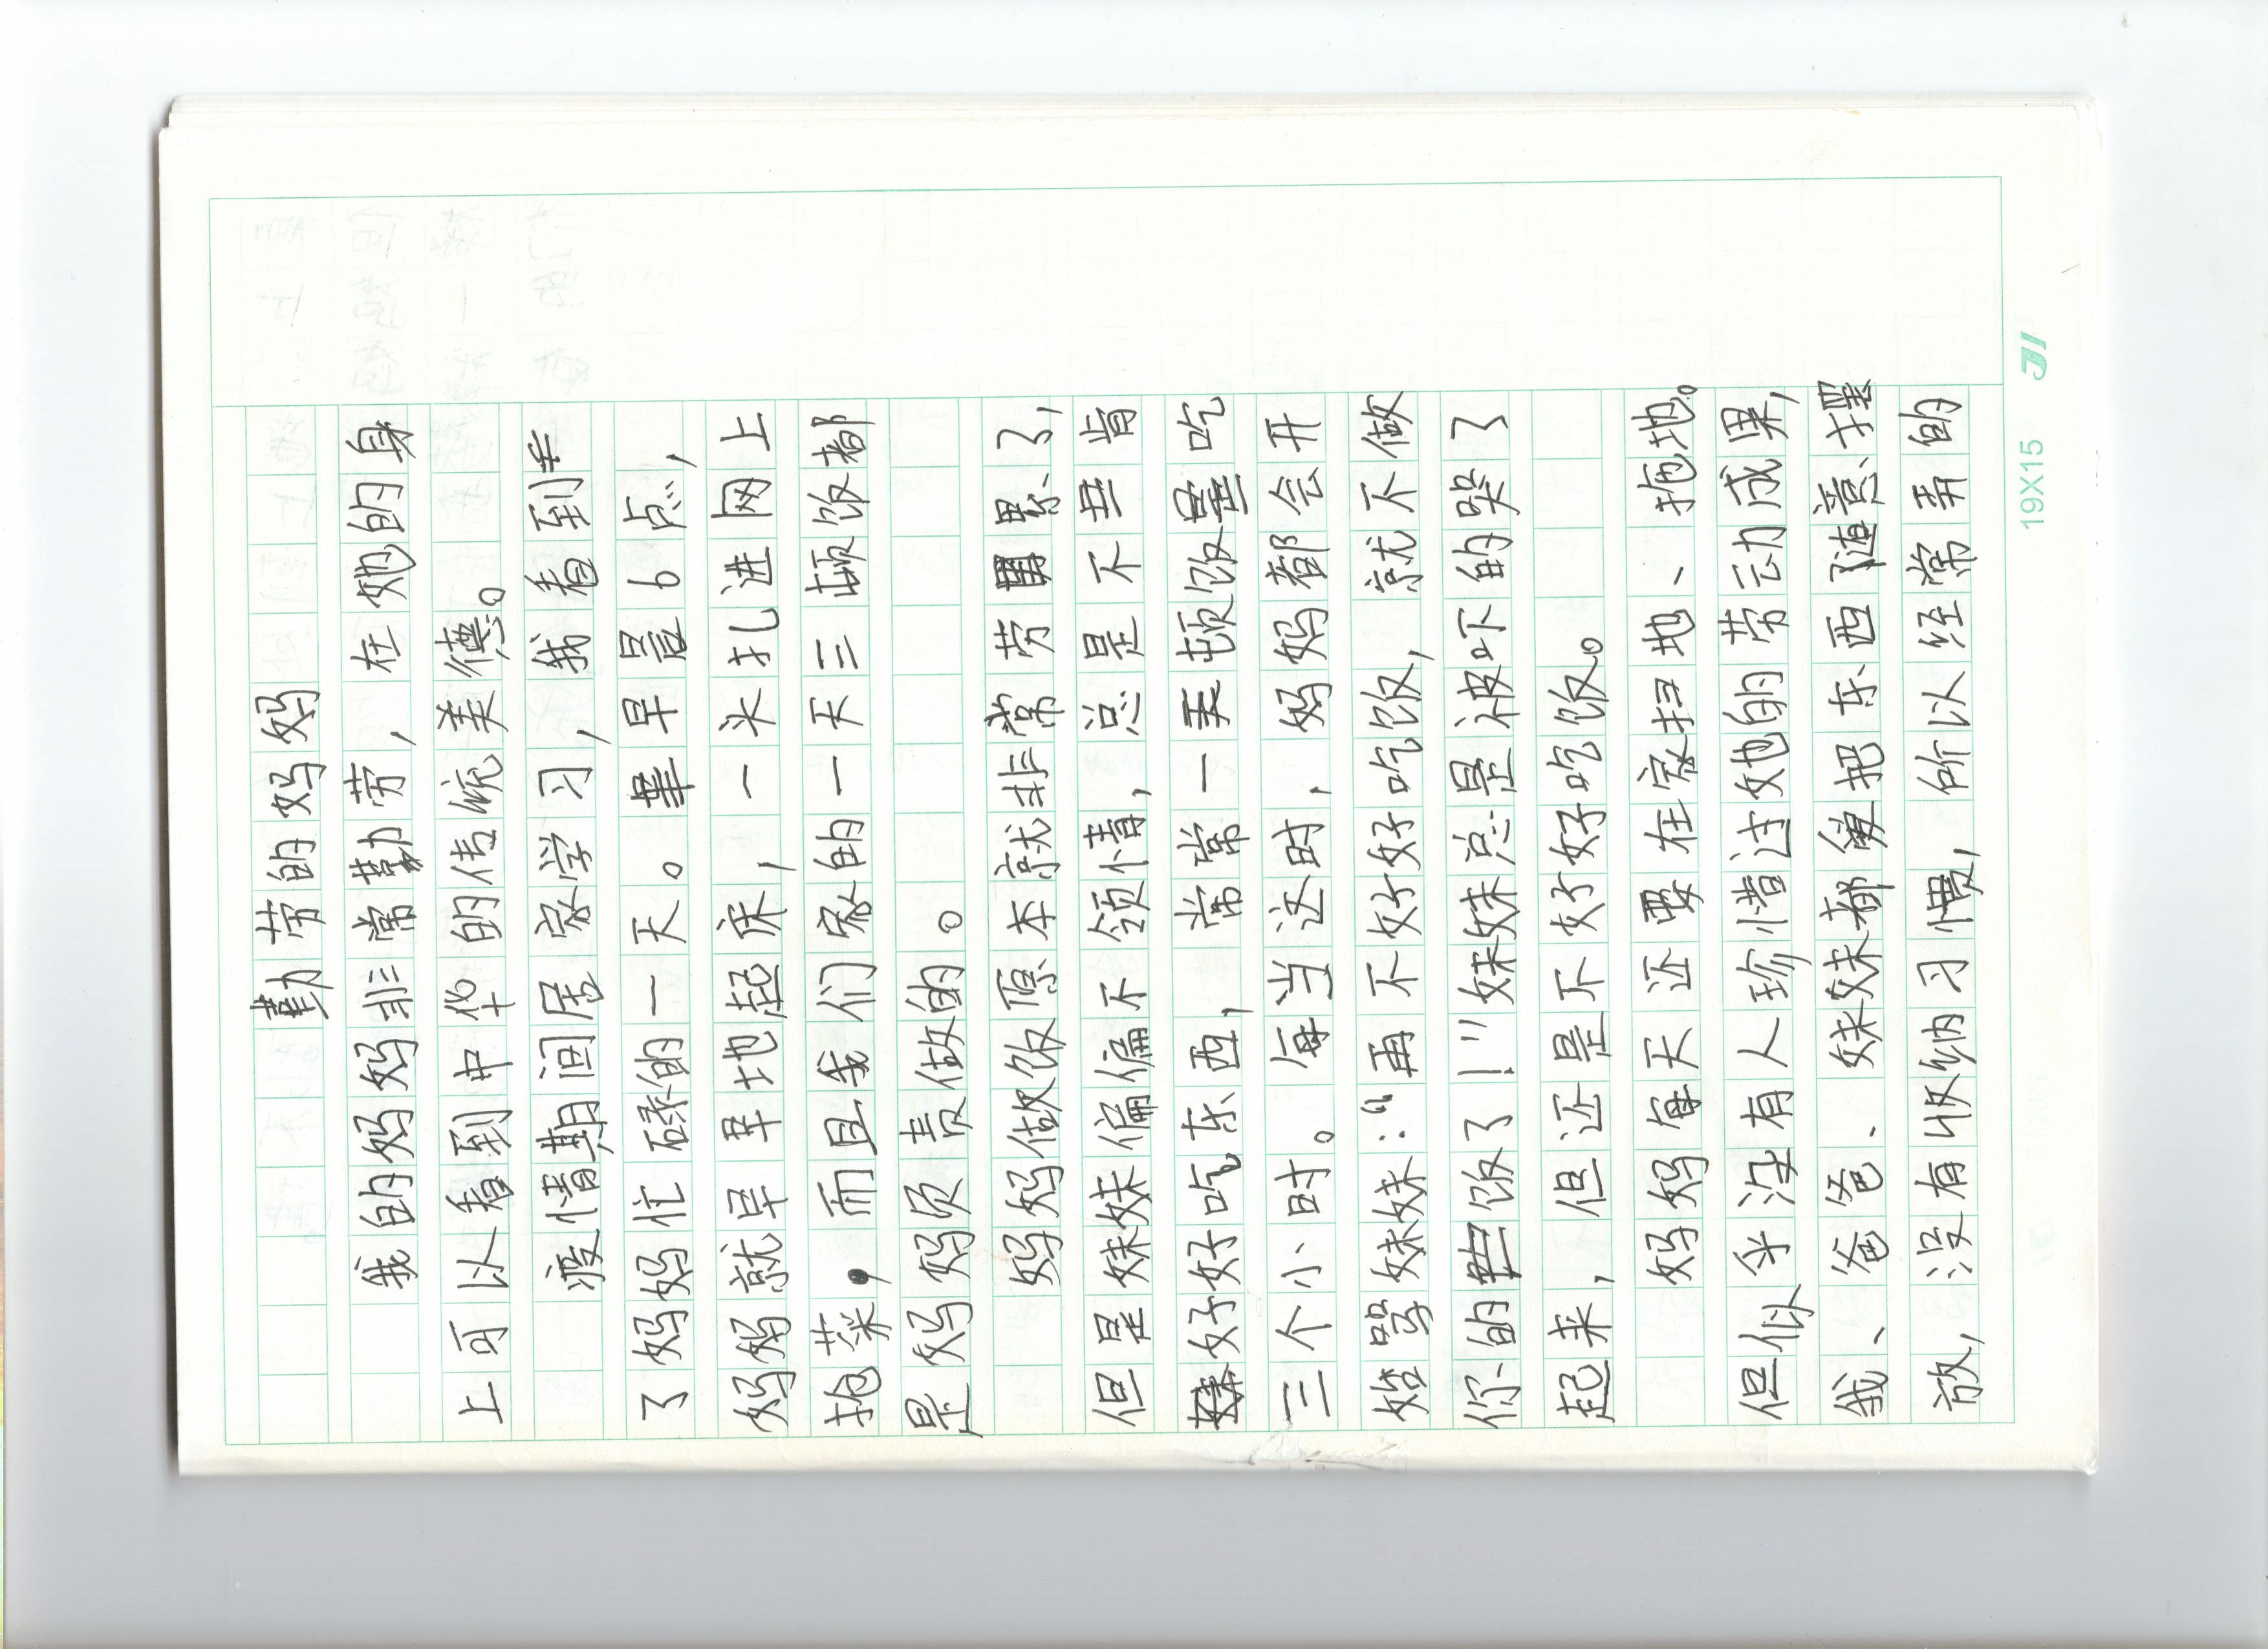 勤劳的妈妈
我的妈妈非常勤劳，在她的身
上可以看到中华的传统美德。
疫情期间居家学习，我看到
了妈妈忙碌的一天。早晨6点，
妈妈就早早地起床，一头扎进网上
抢菜，而且我们家的一天三顿饭都
是妈妈负责做的。
妈妈做饭原本就非常劳累了，
但是妹妹偏偏不领情，总是不肯
好好吃东西，常常一顿饭吃
三个小时。每当这时，妈妈都会开
始骂妹妹：“再不好好吃饭，就不做
你的饭了！”妹妹总是被吓的哭了
起来，但还是不好好吃饭。
妈妈每天还要在家扫地、拖地。
但似乎没有人珍惜过她的劳动成果，
我、爸爸、妹妹都爱把东西随意摆
放，没有收纳习惯，所以经常弄的
19X15